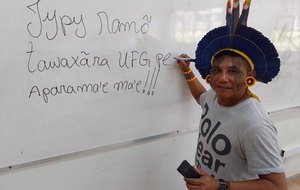 Typy ramõ
tawaxãra UFG pe
Aparama'e ma'e!!!
Polo